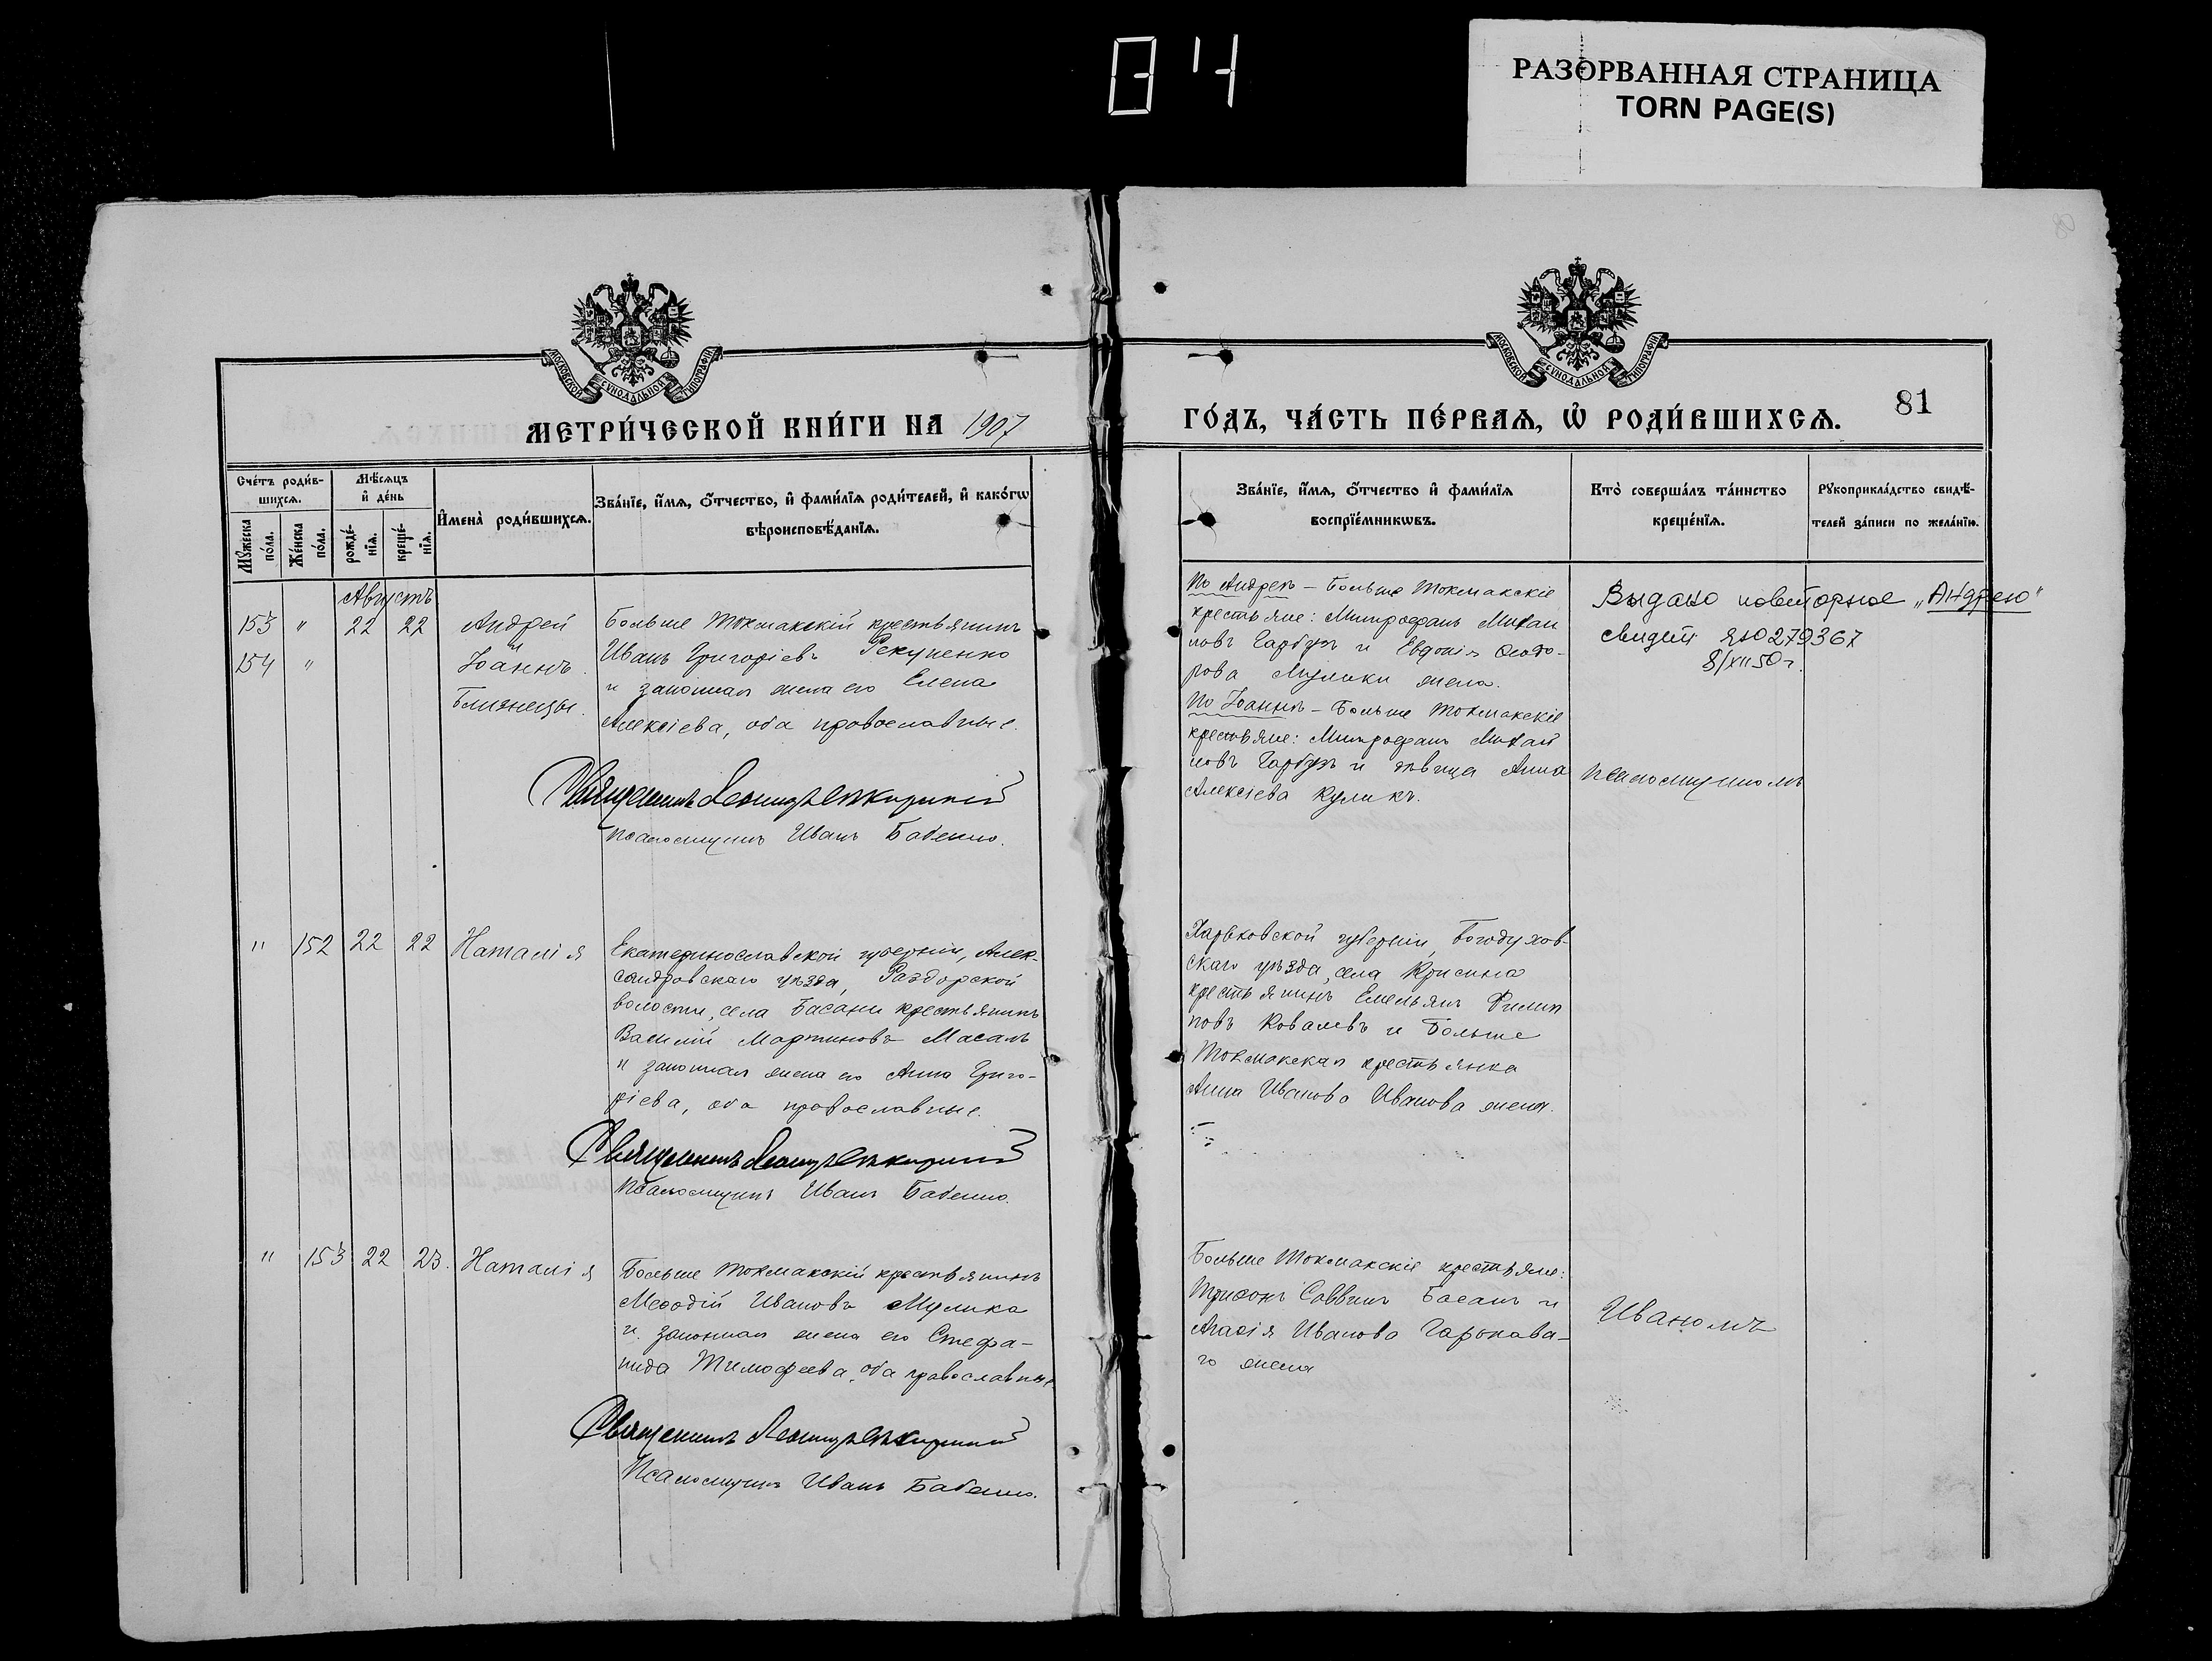 04
РАЗОРВАННАЯ СТРАНИЦА
TORN PAGE(S)
80
МОСКОВСКОЙ СѴНОДАЛЬНОЙ ТИПОГРАФІИ
МОСКОВСКОЙ СѴНОДАЛЬНОЙ ТИПОГРАФІИ
МЕТРИ́ЧЕСКОЙ КНИ́ГИ НА 1907
ГО́ДЪ, ЧА́СТЬ ПЕ́РВАѦ, Ѡ҆ РОДИ́ВШИХСѦ.
81
Сче́тъ роди́в-
шихсѧ.
Мꙋ́жеска по́ла.
Же́нска по́ла.
Мѣ́сѧцъ
и҆ де́нь
рожде́-
нїѧ.
креще́-
нїѧ.
И҆мена̀ роди́вшихсѧ.
Зва́нїе, и҆́мѧ, ѻ҆́тчество, и҆ фами́лїѧ роди́телей, и҆ како́гѡ
вѣроисповѣ́данїѧ.
Зва́нїе, и҆́мѧ, ѻ҆́тчество и҆ фами́лїѧ
воспрїе́мникѡвъ.
Кто̀ соверша́лъ та́инство
креще́нїѧ.
Рꙋкоприкла́дство свидѣ́-
телей за́писи по жела́нїю.
Августъ
153 " 22 22 Андрей
и
154 " Іоаннъ
Близнецы.
Больше Токмакскій крестьянинъ
Иванъ Григоріевъ Рекуненко
и законная жена его Елена
Алексіева, оба православные.
Священникъ Леонидъ
Псаломщикъ Иванъ Бабенко.
По Андреѣ – Больше Токмакскіе
крестьяне: Митрофанъ Михаи
ловъ Гарбузъ и Евдокія Ѳеодо-
рова Мулики жена.
По Іоаннѣ – Больше Токмакскіе
крестьяне: Митрофанъ Михаи
ловъ Гарбузъ и дѣвица Анна
Алексіева Куликъ.
Выдано повторное „Андрею"
свидет ЯЮ 279367
8/XII 50 г.
Псаломщикомъ
" 152 22 22 Наталія
Екатеринославской губерніи, Алек-
сандровскаго уѣзда, Раздорской
волости, села Басани крестьянинъ
Василій Мартиновъ Масалъ
и законная жена его Анна Григо-
ріева, оба православные.
Священникъ Леонидъ
Псаломщикъ Иванъ Бабенко.
Харьковской губерніи, Богодухов-
скаго уѣзда, села Крисина
крестьянинъ Емельянъ Филип
повъ Ковалевъ и Больше
Токмакская крестьянка
Анна Иванова Иванова жена.
" 153 22 23. Наталія
Больше Токмакскій крестьянинъ
Меѳодій Ивановъ Мулика
и законная жена его Стефа-
нида Тимофеева, оба православные
Священникъ Леонидъ
Псаломщикъ Иванъ Бабенко.
Больше Токмакскіе крестьяне:
Трифонъ Саввинъ Басанъ и
Агафія Иванова Гаркава-
го жена
Иваномъ